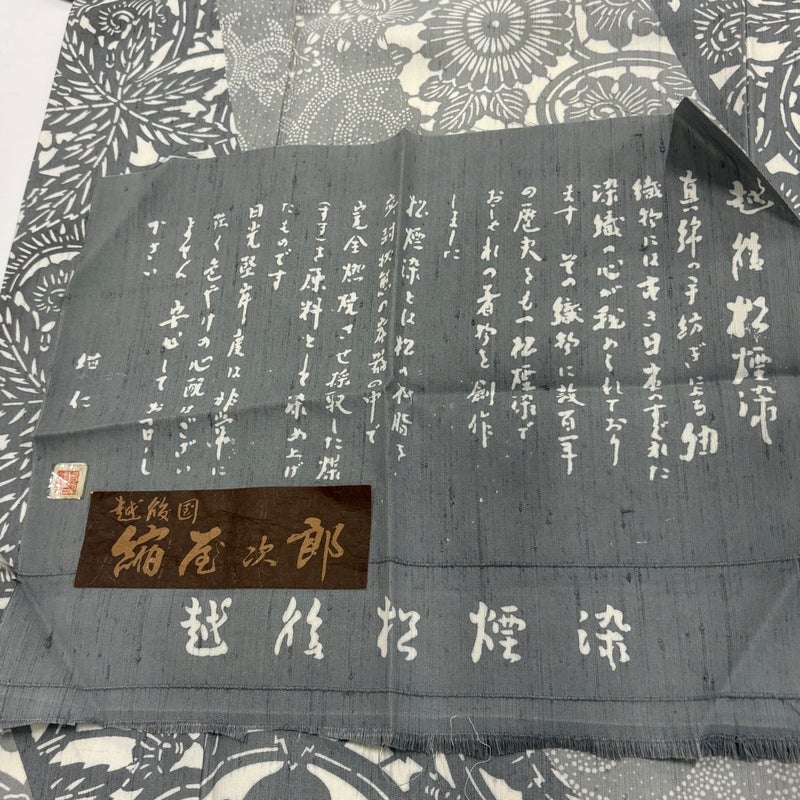 越後松煙染
真綿の手紡ぎによる紬
織物には古き日本のすぐれた
染織の心が秘められており
ます その織物に数百年
の歴史をもつ松煙染で
おしゃれの着物を創作
しました
松煙染とは松の樹脂を
密封状態の容器の中で
完全燃焼させ採取した煤
(すす)を原料として染め上げ
たものです
日光堅牢度は非常に
高く色やけの心配はござい
ません 安心してお召し
下さい
紺仁
越後国
縮屋次郎
越後松煙染